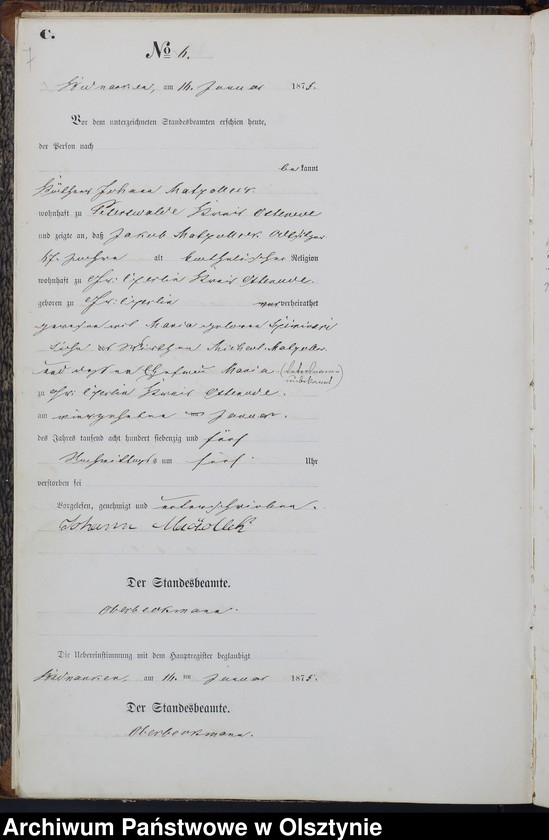 C.
No 6.
am 16. Januar 1875.
Vor dem unterzeichneten Standesbeamten erschien heute,
der Person nach
bekannt
Johann
wohnhaft zu Peterswalde Kreis Osterode
und zeigte an, daß Jakob
57 Jahre alt katholischer Religion
wohnhaft zu Gr: Kreis Osterode.
geboren zu Gr: verheirathet
gewesen mit Maria geborene
Sohn des Michael
und dessen Ehefrau Maria (
unbekannt)
zu Gr: Kreis Osterode.
am vierzehnten Januar
des Jahres tausend acht hundert siebenzig und fünf
Nachmittags um fünf Uhr
verstorben sei
Vorgelesen, genehmigt und unterschrieben.
Johann
Der Standesbeamte.
Oberbeckmann.
Die Uebereinstimmung mit dem Hauptregister beglaubigt
am 16. ten Januar 1875.
Der Standesbeamte.
Oberbeckmann.
Archiwum Państwowe w Olsztynie